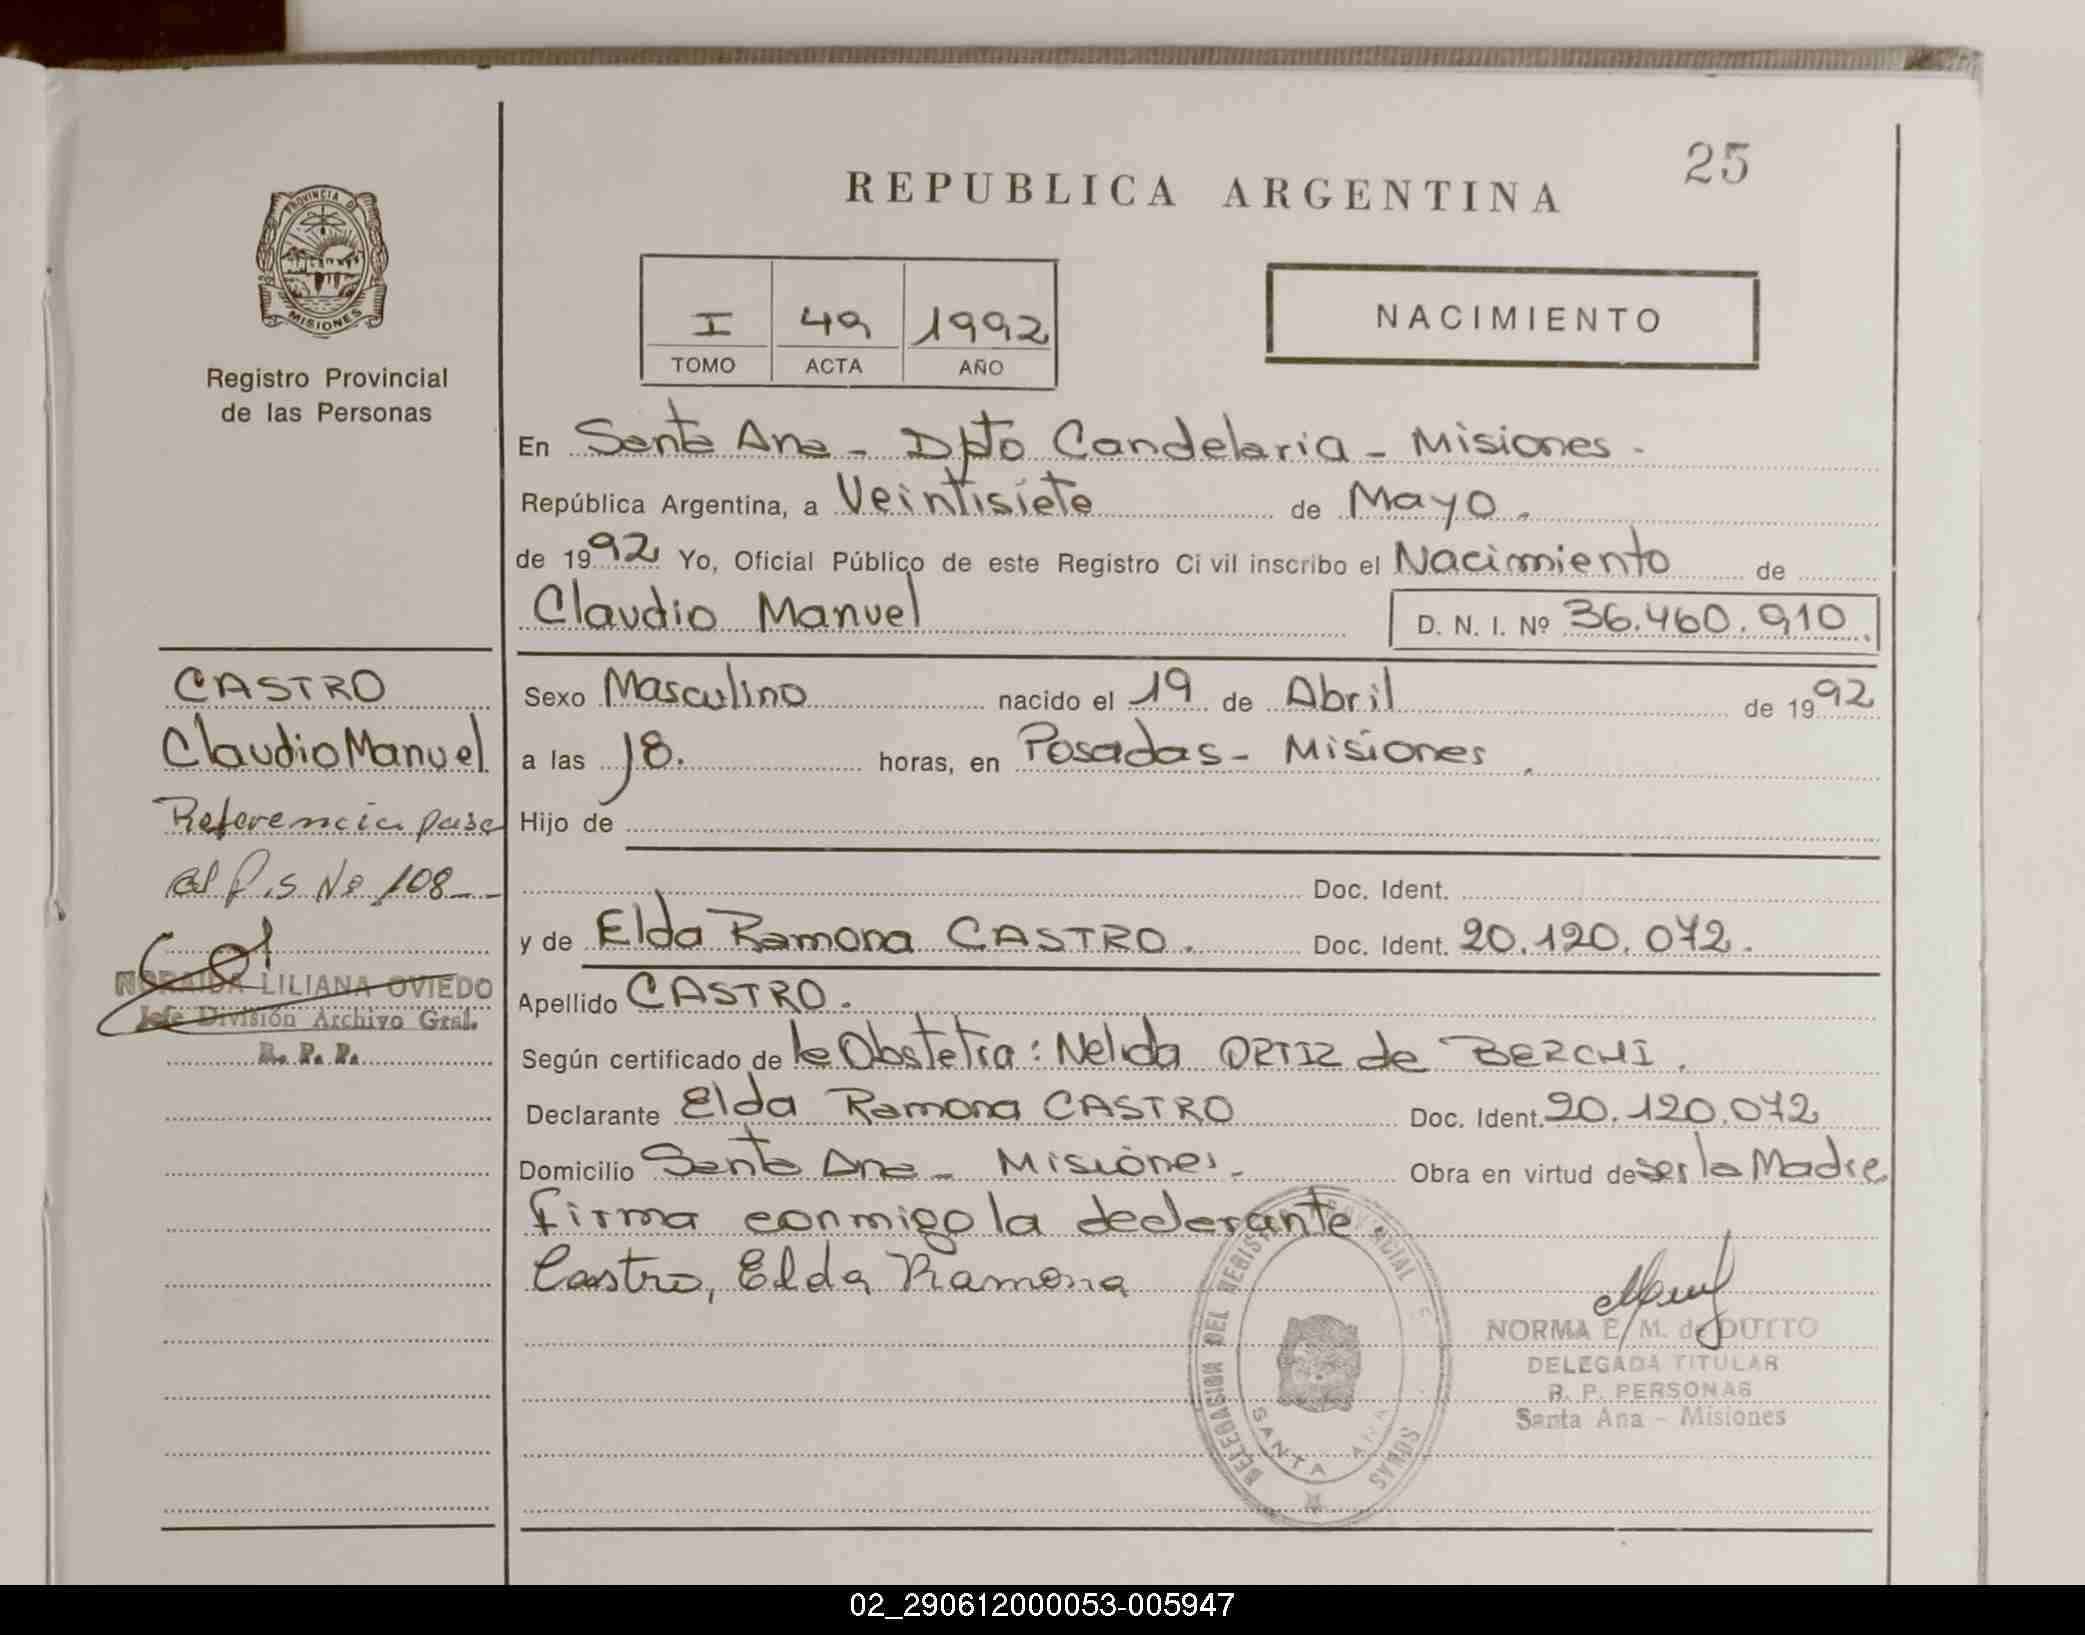 25
REPUBLICA ARGENTINA
PROVINCIA DE
MISIONES
Registro Provincial
de las Personas
I 49 1992
TOMO ACTA AÑO
NACIMIENTO
En Santa Ana - Dpto Candelaria - Misiones -
República Argentina, a Veintisiete de Mayo.
de 1992 Yo, Oficial Público de este Registro Civil inscribo el Nacimiento de
Claudio Manuel D. N. I. Nº 36.460.910
CASTRO
Claudio Manuel
Referencia pase
al f.s Nº 108
NORAIDA LILIANA OVIEDO
Jefe División Archivo Gral.
R. P. P.
Sexo Masculino nacido el 19 de Abril de 1992
a las 18. horas, en Posadas - Misiones.
Hijo de
Doc. Ident.
y de Elda Ramona CASTRO. Doc. Ident. 20.120.072.
Apellido CASTRO.
Según certificado de la Obstetra: Nelida ORTIZ de BERCHI.
Declarante Elda Ramona CASTRO Doc. Ident. 20.120.072
Domicilio Santa Ana - Misiones. Obra en virtud de ser la Madre
firma conmigo la declarante
Castro, Elda Ramona
DELEGACION DEL REGISTRO PROVINCIAL DE SONAS
SANTA ANA
NORMA E. M. de DUTTO
DELEGADA TITULAR
R. P. PERSONAS
Santa Ana - Misiones
02_290612000053-005947